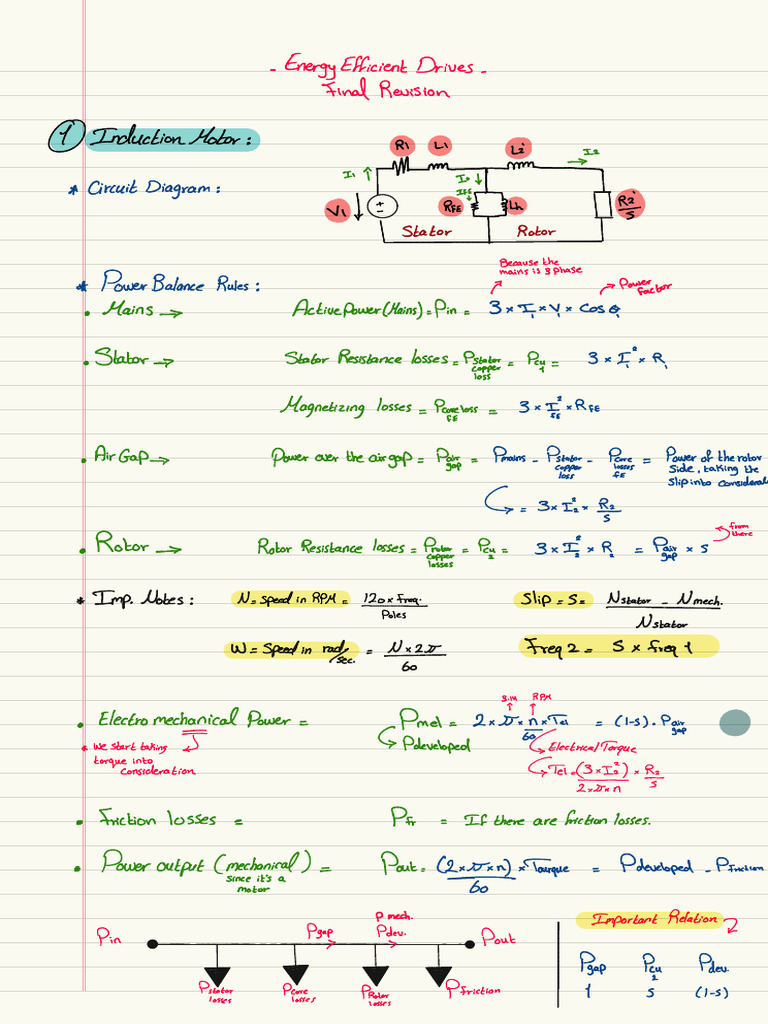 - Energy Efficient Drives -
Final Revision
1 Induction Motor :
* Circuit Diagram :
R1 L1 L2' I2
I1 Io
IFE
V1 RFE Lh R2'/S
Stator Rotor
* Power Balance Rules :
Because the mains is 3 phase
Power factor
• Mains → Active Power (Mains) = Pin = 3 × I1 × V1 × cos θ1
• Stator → Stator Resistance losses = P stator copper loss = Pcu1 = 3 × I1² × R1
Magnetizing losses = P core loss FE = 3 × IFE² × RFE
• Air Gap → Power over the air gap = P air gap = Pmains - P stator copper loss - P core losses FE = Power of the rotor side, taking the slip into considera
= 3 × I2² × R2/S
from there
• Rotor → Rotor Resistance losses = P rotor copper losses = Pcu2 = 3 × I2² × R2 = P air gap × s
* Imp. Notes : N = speed in RPM = 120 × Freq. / Poles
Slip = S = Nstator - Nmech. / Nstator
W = Speed in rad/sec. = N × 2π / 60
Freq 2 = S × freq 1
RPM
• Electro mechanical Power = Pmel = 2 × π × n × Tel / 60 = (1-s) . P air gap
Pdeveloped
* We start taking torque into consideration
Electrical Torque
Tel = (3 × I2²) / 2 × π × n × R2/S
• Friction losses = Pfr = If there are friction losses.
• Power output (mechanical) = Pout = (2 × π × n) / 60 × Torque = Pdeveloped - Pfriction
since it's a motor
Pin Pgap P mech. Pdev. Pout
P stator losses P core losses P Rotor losses P friction
Important Relation
Pgap Pcu2 Pdev.
1 s (1-s)